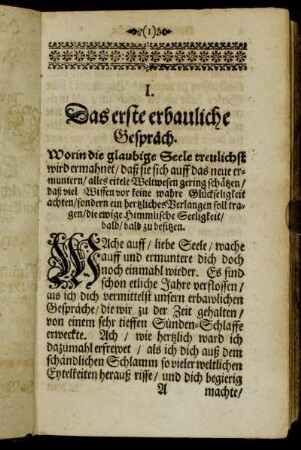 (1)
I.
Das erste erbauliche
Gespräch.
Worin die glaubige Seele treulichst
wird ermahnet / daß sie sich auff das neue er-
muntern / alles eitele Weltwesen gering schätzen /
daß viel Wissen vor keine wahre Glückseligkeit
achten / sondern ein hertzliches Verlangen soll tra-
gen / die ewige Himmlische Seeligkeit /
bald / bald zu besitzen.
WAche auff / liebe Seele / wache
auff und ermuntere dich doch
noch einmahl wieder. Es sind
schon etliche Jahre verflossen /
als ich dich vermittelst unsern erbawlichen
Gespräche / die wir zu der Zeit gehalten /
von einem sehr tieffen Sünden-Schlaffe
erweckte. Ach / wie hertzlich ward ich
dazumahl erfrewet / als ich dich auß dem
schändlichen Schlamm so vieler weltlichen
Eytelkeiten herauß risse / und dich begierig
A machte /